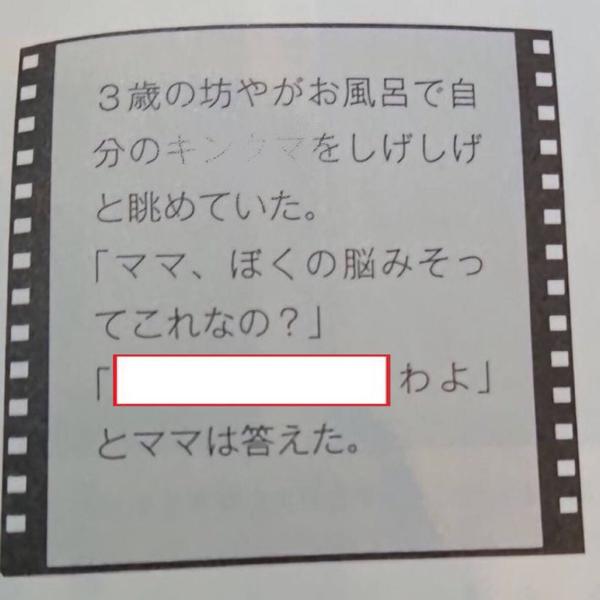 3歳の坊やがお風呂で自
分のキンタマをしげしげ
と眺めていた。
「ママ、ぼくの脳みそっ
てこれなの?」
「 わよ」
とママは答えた。